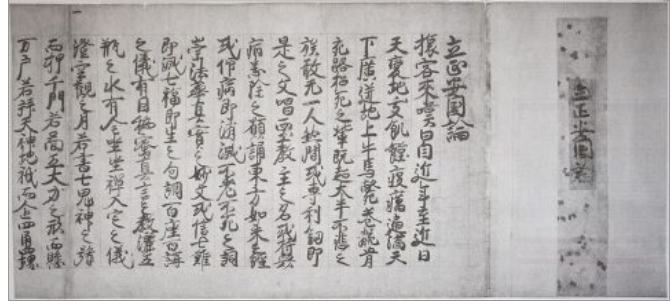 立正安国論
立正安国論
旅客来嘆曰自近年至近日
天変地夭飢饉疫癘遍満天
下廣迸地上牛馬斃巷骸骨
充路招死之輩既超大半不悲之
族敢无一人然間或専利釼即
是之文唱西土教主之名或恃衆
病悉除之願誦東方如来之経
或仰病即消滅不老不死之詞
崇法華真實之妙文或信七難
即滅七福即生之句調百座百講
之儀有因秘密真言之教灑五
瓶之水有全坐禅入定之儀
澄空観之月若書七鬼神之号
而押千門若啚五大力之形而懸
万戸若拝天神地祇而企四角四堺